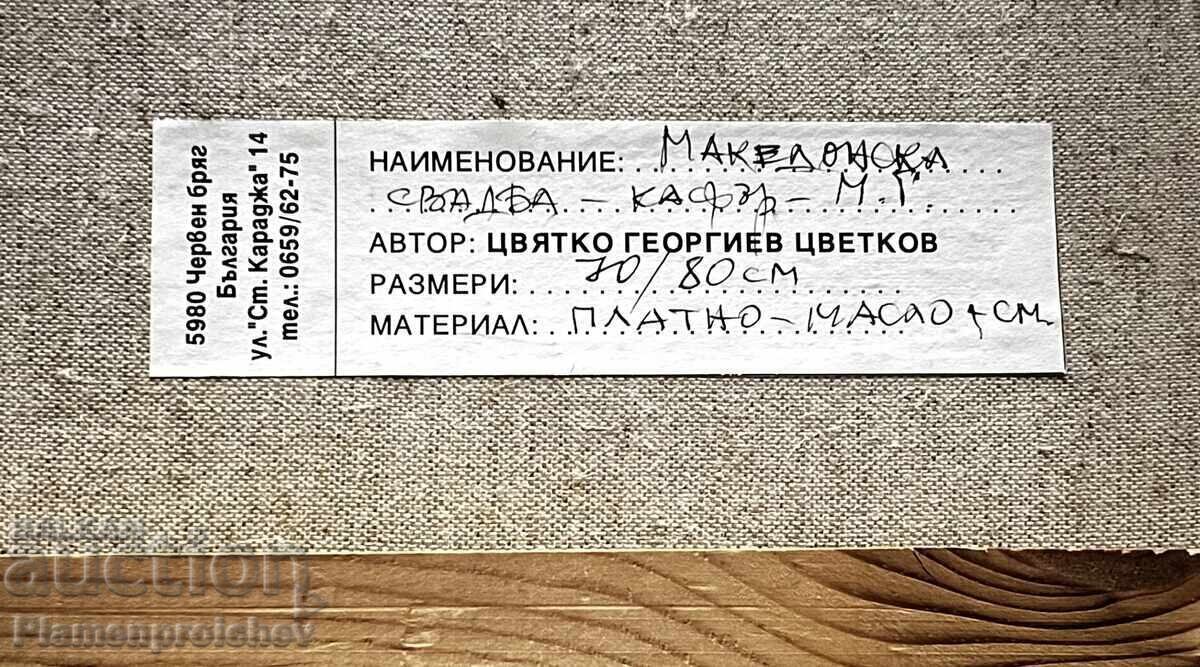 5980 Червен бряг
България
ул."Ст. Караджа" 14
тел.: 0659/62-75
НАИМЕНОВАНИЕ: МАКЕДОНСКА
СВАДБА - КАФЪР - М.Г.
АВТОР: ЦВЯТКО ГЕОРГИЕВ ЦВЕТКОВ
РАЗМЕРИ: 70/80 СМ
МАТЕРИАЛ: ПЛАТНО - МАСЛО
BALKAN
auction
Plamenproichev